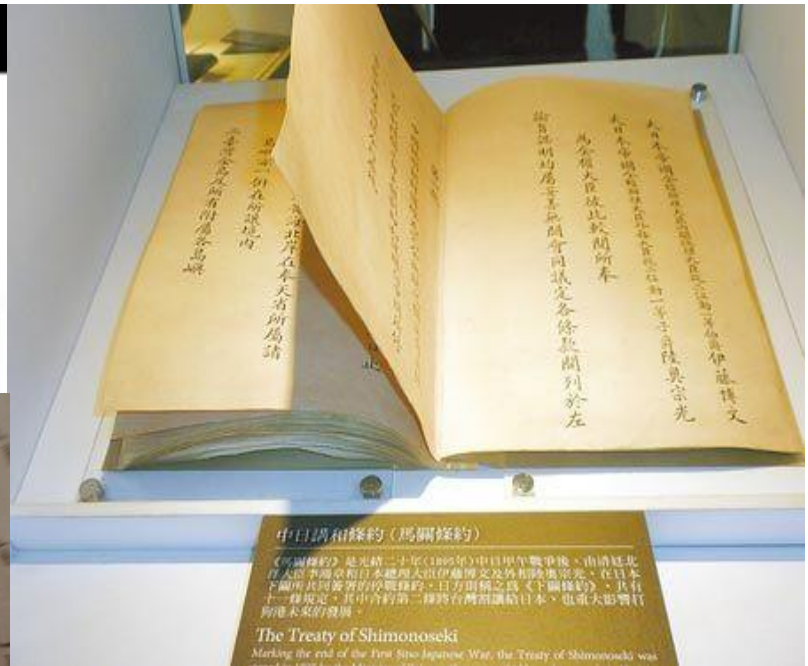 大日本帝國全權辦理大臣內閣總理大臣從二位勳一等伯爵伊藤博文
大日本帝國全權辦理大臣外務大臣從二位勳一等子爵陸奧宗光
為全權大臣彼此較閱所奉
諭旨認明均屬妥善無闕會同議定各條款開列於左
海北岸在奉天省所屬諸
島嶼亦一併在所讓境內
二臺灣全島及所有附屬各島嶼
中日講和條約(馬關條約)
《馬關條約》是光緒二十年(1895年)中日甲午戰爭後,由清廷北
洋大臣李鴻章和日本總理大臣伊藤博文及外相陸奧宗光,在日本
下關所共同簽署的停戰條約,日方則稱之為《下關條約》,共有
十一條規定,其中合約第二條將台灣割讓給日本,也重大影響打
狗港未來的發展。
The Treaty of Shimonoseki
Marking the end of the First Sino-Japanese War, the Treaty of Shimonoseki was